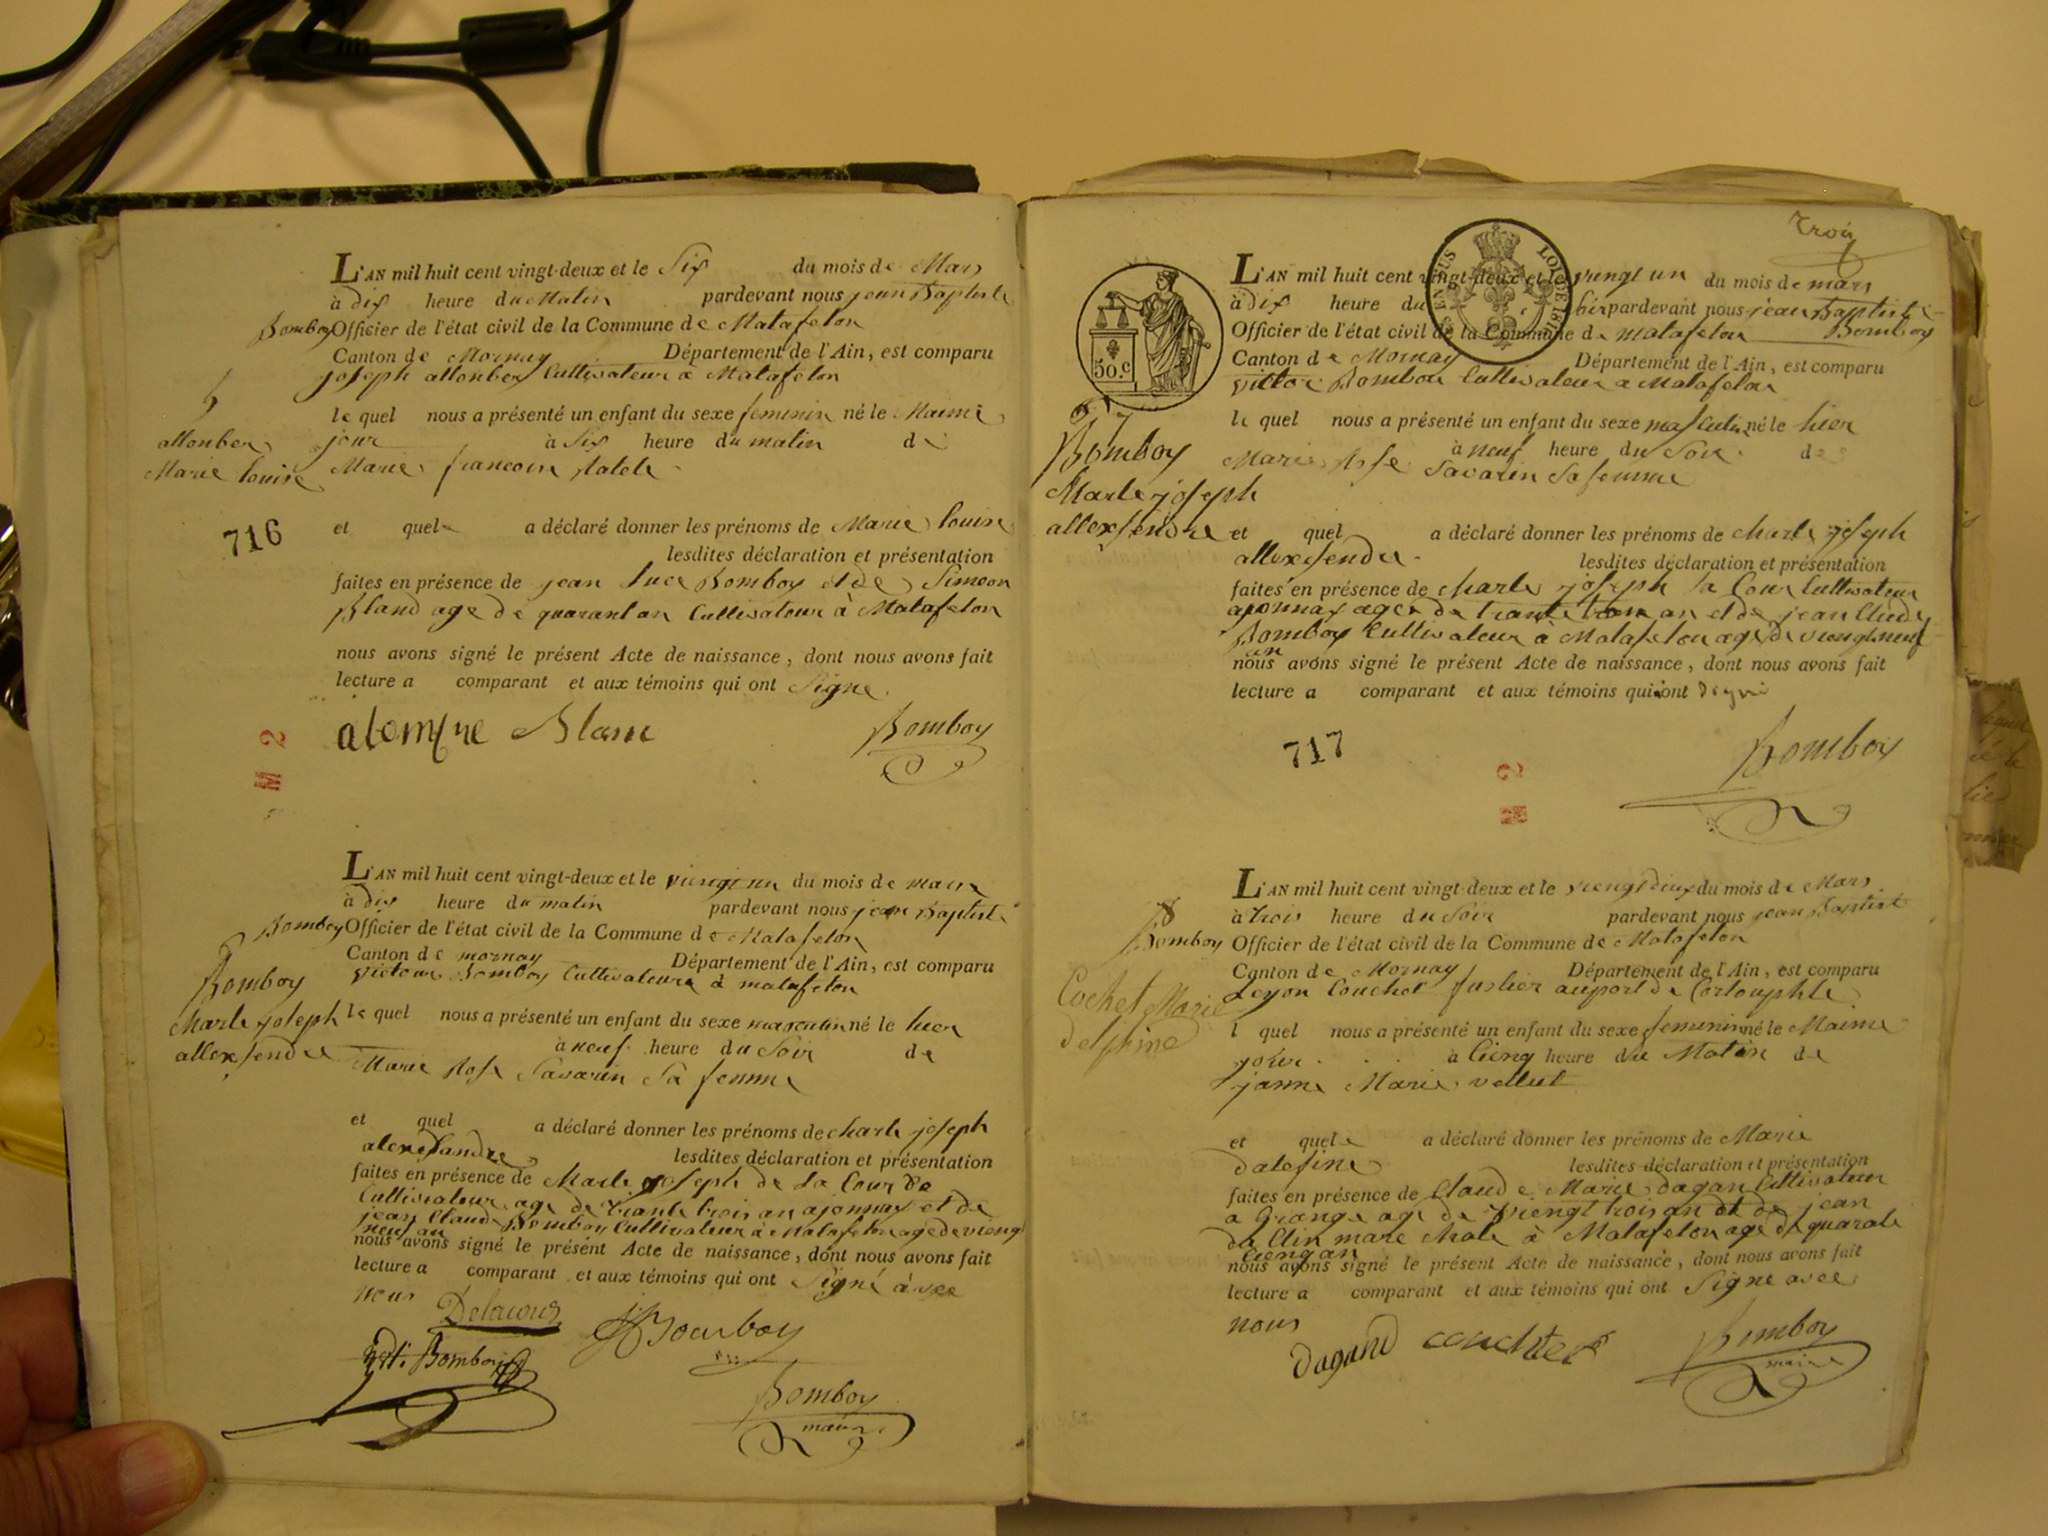 L'AN mil huit cent vingt-deux et le Six du mois de Mars
à dix heure du Matin pardevant nous jean Baptiste
Bomboy Officier de l'état civil de la Commune de Matafelon
Canton de Mornay Département de l'Ain, est comparu
joseph allonbex Cultivateur a Matafelon
le quel nous a présenté un enfant du sexe feminin né le Maime
jour à Six heure du matin de
Marie francoise
allonbex
Marie louise
716
et quele a déclaré donner les prénoms de Marie louise
lesdites déclaration et présentation
faites en présence de jean luce Bomboy et de Simeon
Bland age de quarant an Cultivateur à Matafelon
nous avons signé le présent Acte de naissance, dont nous avons fait
lecture a comparant et aux témoins qui ont Signe
Blanc Bomboy
M 2
L'AN mil huit cent vingt-deux et le viengt un du mois de mars
à dix heure du matin pardevant nous jean Baptiste
Bomboy Officier de l'état civil de la Commune de Matafelon
Canton de mornay Département de l'Ain, est comparu
victour Bomboy Cultivateur a matafelon
6
Bomboy
Marle joseph
allexsendre
le quel nous a présenté un enfant du sexe masculin né le hier
à neuf heure du Soir de
Marie Rose Savarin Sa femme
et quel a déclaré donner les prénoms de charle joseph
alexandre lesdites déclaration et présentation
faites en présence de Marle joseph de La Cour de
Cultivateur age de trante trois an ajonnax et de
jean Claude Bomboy Cultivateur à Matafelon age de viengt
neuf an
nous avons signé le présent Acte de naissance, dont nous avons fait
lecture a comparant et aux témoins qui ont Signé avec
nous
Delacour Bomboy
Bomboy
Bomboy
maire
Trois
L'AN mil huit cent vingt-deux et le viengt un du mois de mars
à dix heure du pardevant nous jean Baptiste
Officier de l'état civil de la Commune de matafelon Bomboy
Canton de Mornay Département de l'Ain, est comparu
victor Bomboy Cultivateur a Matafelon
50.c
7
Bomboy
Marle joseph
allexsendre
le quel nous a présenté un enfant du sexe masculin né le hier
à neuf heure du Soir de
Marie Rose Savarin Sa femme
et quel a déclaré donner les prénoms de charle joseph
allexsendre lesdites déclaration et présentation
faites en présence de charle joseph la Cour Cultivateur
ajonnax age de trante trois an et de jean Claude
Bomboy Cultivateur à Matafelon age de viengt neuf
an
nous avons signé le présent Acte de naissance, dont nous avons fait
lecture a comparant et aux témoins qui ont Signé
717
Bomboy
M 2
L'AN mil huit cent vingt-deux et le viengt deux du mois de Mars
à trois heure du Soir pardevant nous jean Baptist
Bomboy Officier de l'état civil de la Commune de Matafelon
Canton de Mornay Département de l'Ain, est comparu
8
Cochet Marie
delphine
Couchet fustier au port de
l quel nous a présenté un enfant du sexe feminin né le Maime
jour à Cienq heure du Matin de
janne Marie vellut
et quele a déclaré donner les prénoms de Marie
dalefine lesdites déclaration et présentation
faites en présence de Claude Marie dagan Cultivateur
a Grange age de viengt trois an et de jean
à Matafelon age de quarate
Cienq an
nous avons signé le présent Acte de naissance, dont nous avons fait
lecture a comparant et aux témoins qui ont Signe avec
nous
Dagand couchtet Bomboy
maire